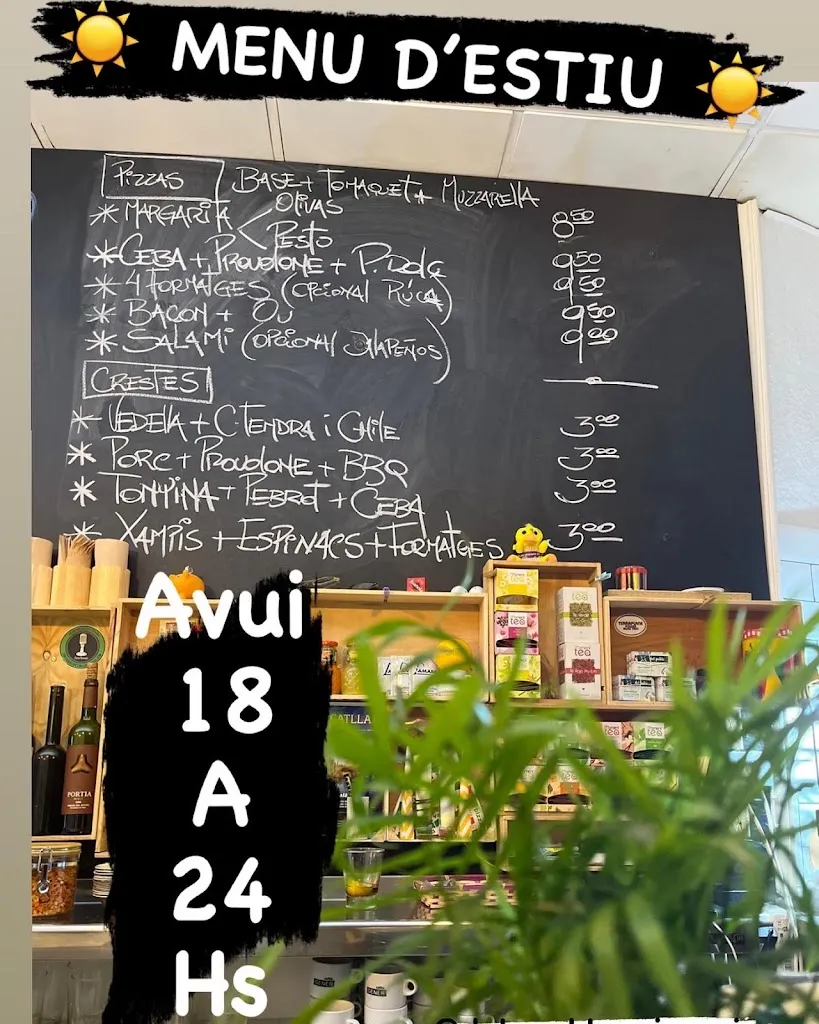 MENU D'ESTIU
PIZZAS BASE+ TOMAQUET+ MUZZARELLA
* MARGARITA < OLIVAS 8,50
PESTO
* CEBA + PROVOLONE + P. DOLÇ 9,50
* 4 FORMATGES (OPCIONAL RÚCA) 9,50
* BACON + OU 9,50
* SALAMI (OPCIONAL JALAPEÑOS)
CRESTES
* VEDELLA + C. TENDRA i CHILE 3,00
* PORC + PROVOLONE + BBQ 3,00
* TONYINA + PEBROT + CEBA 3,00
* XAMPIS + ESPINACS + FORMATGES 3,00
Avui
18
A
24
Hs
PORTIA
tea
tea
tea